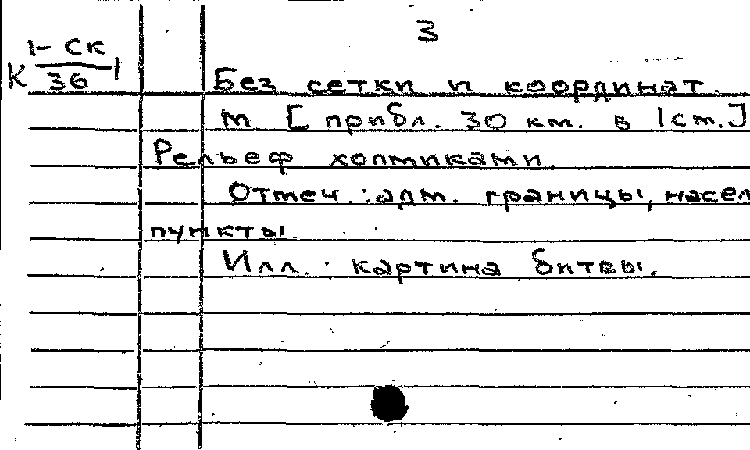 3
К 1-СК/36 1
Без сетки и координат.
М [прибл. 30 км. в 1 см.]
Рельеф холмиками.
Отмеч.: адм. границы, насел
пункты.
Илл.: картина битвы.